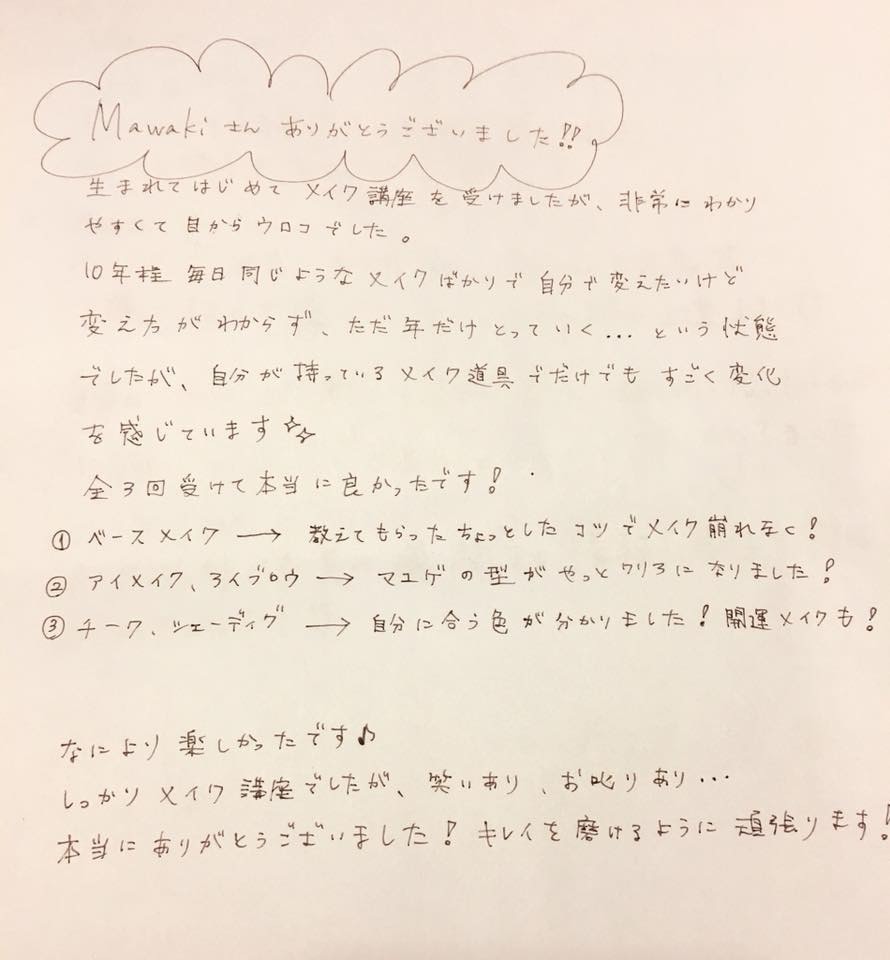 Mawaki さん ありがとうございました!!
生まれてはじめて メイク講座を受けましたが、非常にわかり
やすくて目からウロコでした。
10年程 毎日同じようなメイクばかりで自分で変えたいけど
変え方がわからず、ただ年だけとっていく...という状態
でしたが、自分が持っているメイク道具でだけでもすごく変化
を感じています☆☆
全3回受けて本当に良かったです!
① ベースメイク → 教えてもらったちょっとしたコツでメイク崩れなく!
② アイメイク、アイブロウ → マユゲの型がやっと になりました!
③ チーク、シェーディグ → 自分に合う色が分かりました!開運メイクも!
なにより楽しかったです♪
しっかりメイク講座でしたが、笑いあり、お叱りあり...
本当にありがとうございました!キレイを磨けるように頑張ります!